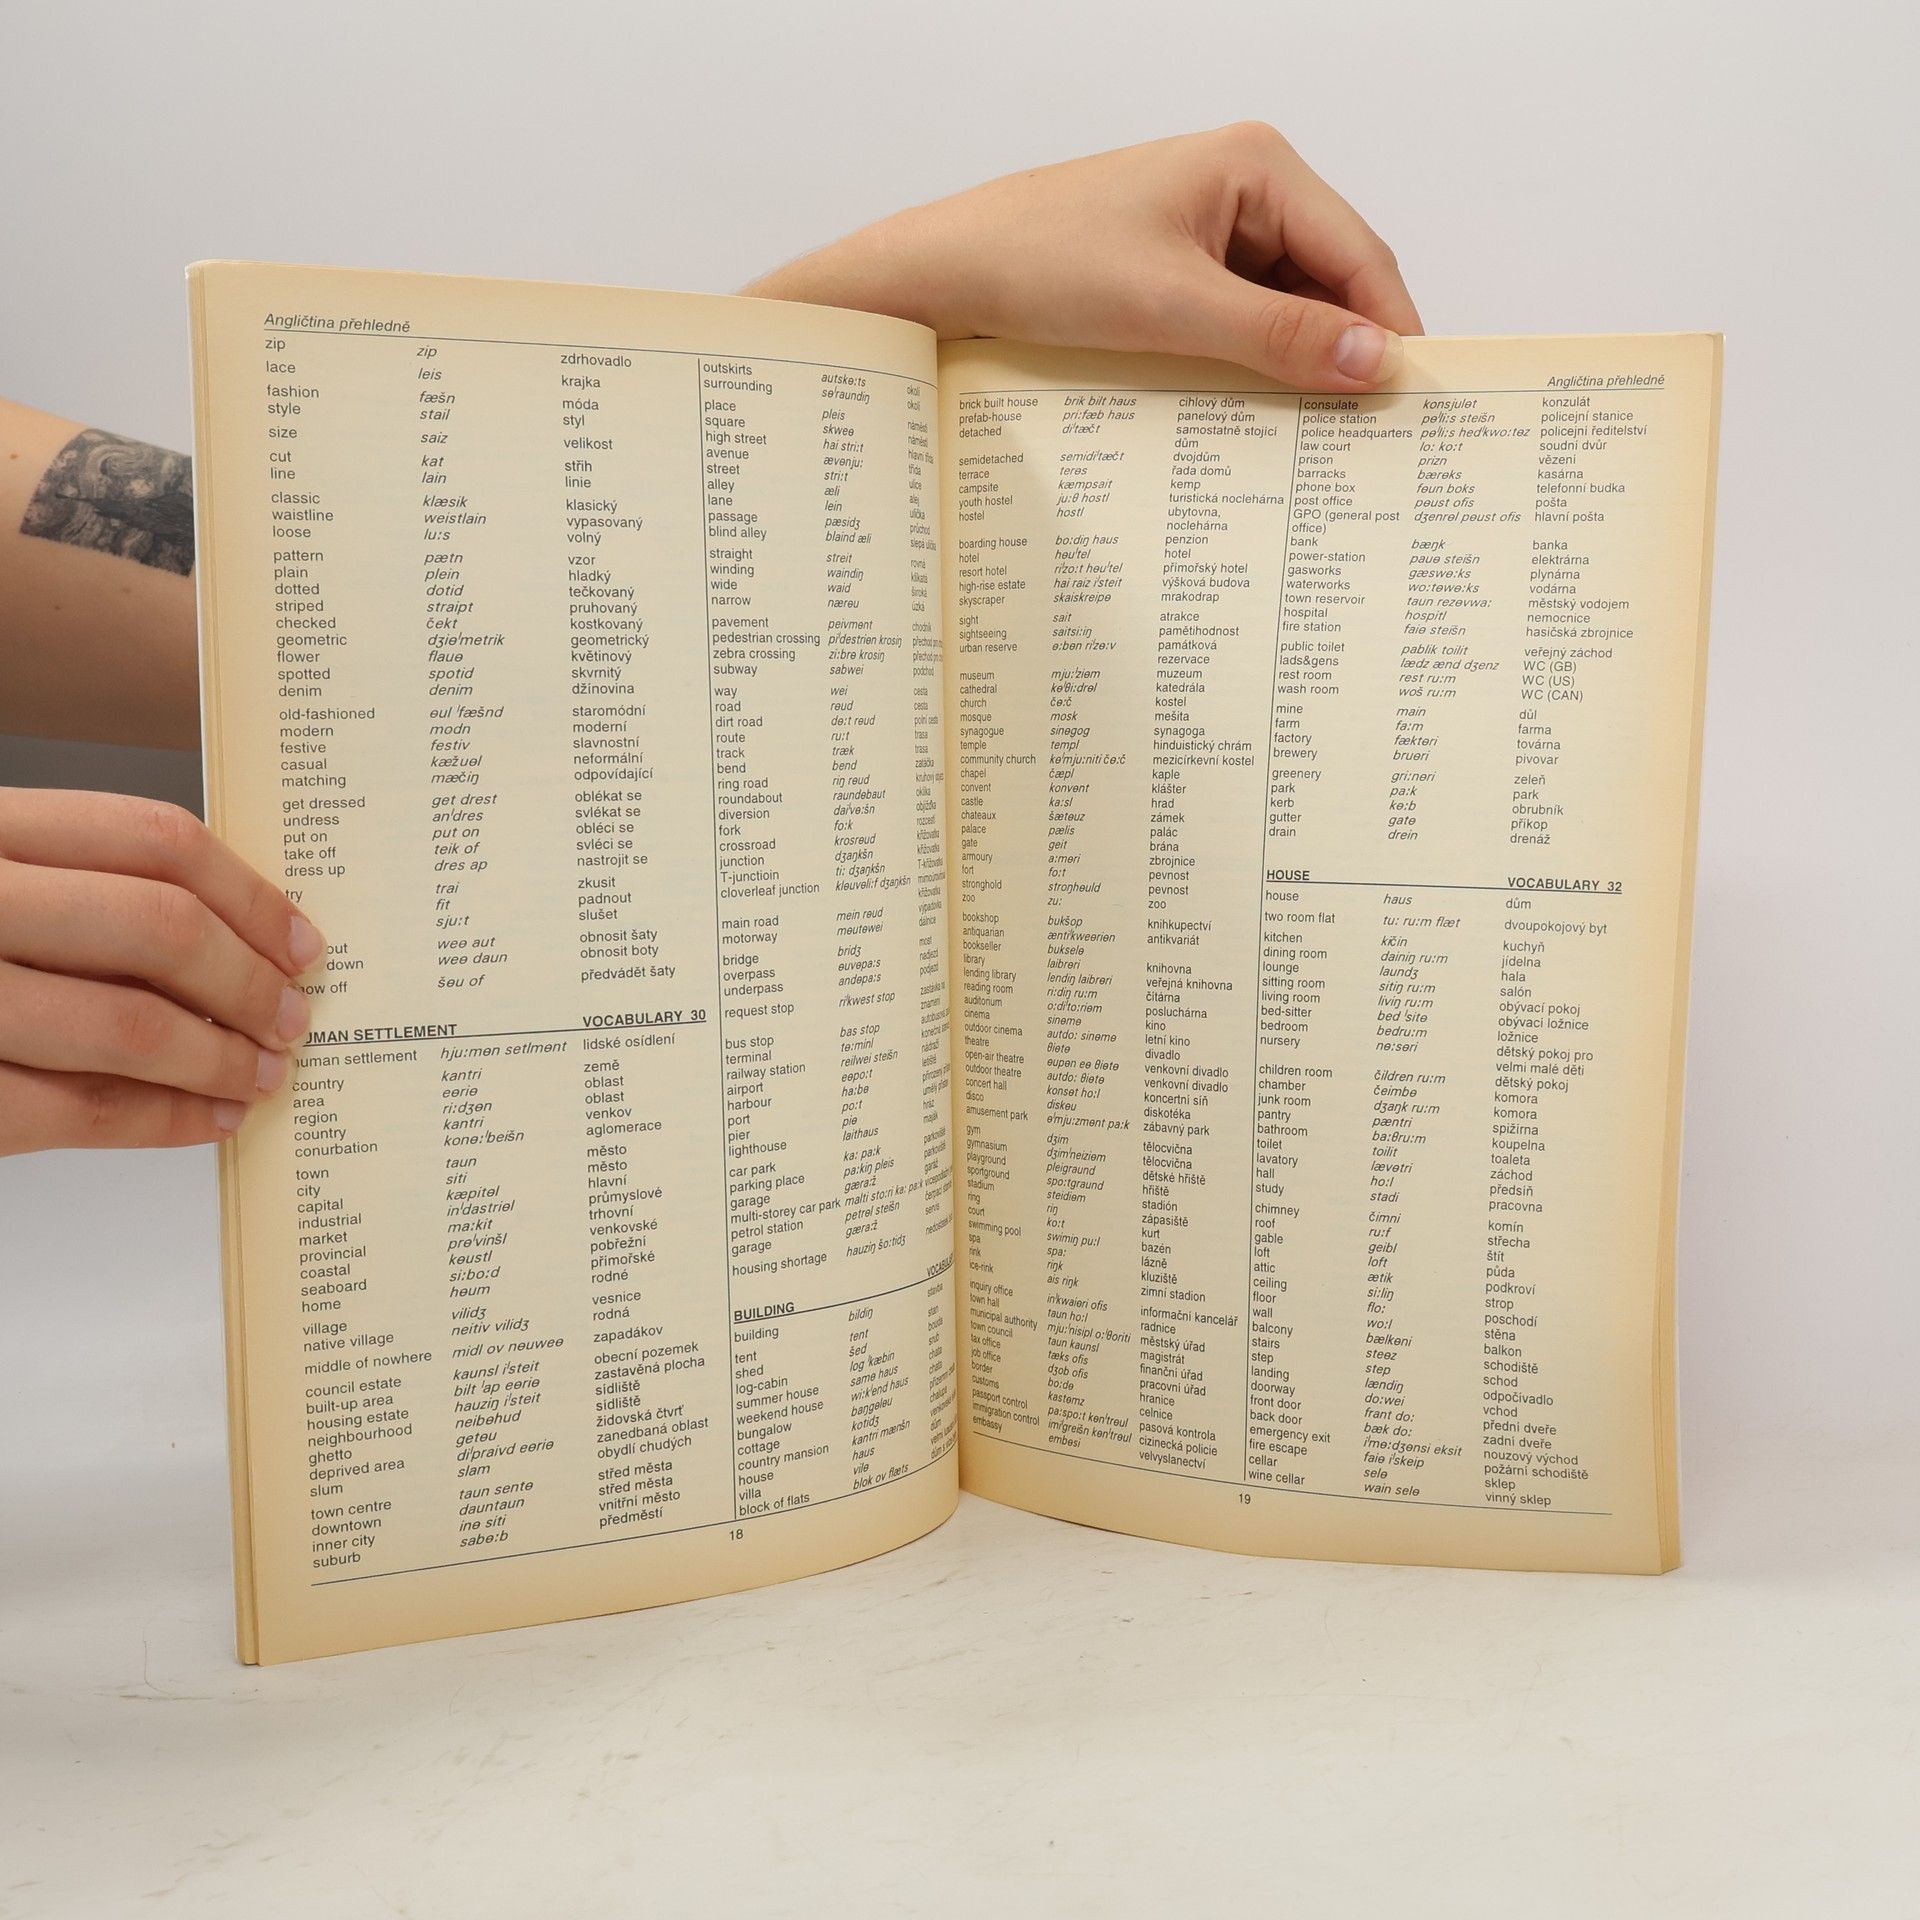 Angličtina přehledně
zip zip zdrhovadlo
lace leis krajka
fashion fæšn móda
style stail styl
size saiz velikost
cut kat střih
line lain linie
classic klæsik klasický
waistline weistlain vypasovaný
loose lu:s volný
pattern pætn vzor
plain plein hladký
dotted dotid tečkovaný
striped straipt pruhovaný
checked čekt kostkovaný
geometric dʒiɵˈmetrik geometrický
flower flauɵ květinový
spotted spotid skvrnitý
denim denim džínovina
old-fashioned ɵul ˈfæšnd staromódní
modern modn moderní
festive festiv slavnostní
casual kæžuɵl neformální
matching mæčiŋ odpovídající
get dressed get drest oblékat se
undress anˈdres svlékat se
put on put on obléci se
take off teik of svléci se
dress up dres ap nastrojit se
try trai zkusit
fit padnout
sju:t slušet
out weɵ aut obnosit šaty
down weɵ daun obnosit boty
ow off šɵu of předvádět šaty
UMAN SETTLEMENT VOCABULARY 30
uman settlement hju:mɵn setlmɵnt lidské osídlení
country kantri země
area eɵriɵ oblast
region ri:dʒɵn oblast
country kantri venkov
conurbation konɵ:ˈbeišn aglomerace
town taun město
city siti město
capital kæpitɵl hlavní
industrial inˈdastriɵl průmyslové
market ma:kit trhovní
provincial prɵˈvinšl venkovské
coastal kɵustl pobřežní
seaboard si:bo:d přímořské
home hɵum rodné
village vilidʒ vesnice
native village neitiv vilidʒ rodná
middle of nowhere midl ov nɵuweɵ zapadákov
council estate kaunsl iˈsteit obecní pozemek
built-up area bilt ˈap eɵriɵ zastavěná plocha
housing estate hauziŋ iˈsteit sídliště
neighbourhood neibɵhud sídliště
ghetto getɵu židovská čtvrť
deprived area diˈpraivd eɵriɵ zanedbaná oblast
slum slam obydlí chudých
town centre taun sentɵ střed města
downtown dauntaun střed města
inner city inɵ siti vnitřní město
suburb sabɵ:b předměstí
outskirts autskɵ:ts okolí
surrounding sɵˈraundiŋ okolí
place pleis náměstí
square skweɵ náměstí
high street hai stri:t hlavní třída
avenue ævɵnju: třída
street stri:t ulice
alley æli alej
lane lein ulička
passage pæsidʒ průchod
blind alley blaind æli slepá ulička
straight streit rovná
winding waindiŋ klikatá
wide waid široká
narrow nærɵu úzká
pavement peivmɵnt chodník
pedestrian crossing piˈdestriɵn krosiŋ přechod pro
zebra crossing zi:brɵ krosiŋ přechod pro
subway sabwei podchod
way wei cesta
road rɵud cesta
dirt road dɵ:t rɵud polní cesta
route ru:t trasa
track træk trasa
bend bend zatáčka
ring road riŋ rɵud kruhový
roundabout raundɵbaut oklika
diversion daiˈvɵ:šn objížďka
fork fo:k rozcestí
crossroad krosrɵud křižovatka
junction dʒaŋkšn křižovatka
T-junctioin ti: dʒaŋkšn T-křižovatka
cloverleaf junction klɵuvɵli:f dʒaŋkšn mimoúrovňová
křižovatka
main road mein rɵud výpadovka
motorway mɵutɵwei dálnice
bridge bridʒ most
overpass ɵuvɵpa:s nadjezd
underpass andɵpa:s podjezd
request stop riˈkwest stop zastávka na
znamení
bus stop bas stop autobusová
terminal tɵ:minl konečná
railway station reilwei steišn nádraží
airport eɵpo:t letiště
harbour ha:bɵ přirozený
port po:t umělý
pier piɵ hráz
lighthouse laithaus maják
car park ka: pa:k parkoviště
parking place pa:kiŋ pleis parkoviště
garage gæra:ž garáž
multi-storey car park malti sto:ri ka: pa:k
petrol station petrɵl steišn čerpací
garage gæra:ž servis
housing shortage hauziŋ šo:tidʒ
BUILDING
building bildiŋ stavba
tent tent stan
shed šed bouda
log-cabin log ˈkæbin srub
summer house samɵ haus chata
weekend house wi:kˈend haus chata
bungalow baŋgɵlɵu
cottage kotidʒ chalupa
country mansion kantri mænšn
house haus dům
villa vilɵ
block of flats blok ov flæts
18
Angličtina přehledně
brick built house brik bilt haus cihlový dům
prefab-house pri:fæb haus panelový dům
detached diˈtæčt samostatně stojící
dům
semidetached semidiˈtæčt dvojdům
terrace terɵs řada domů
campsite kæmpsait kemp
youth hostel ju:θ hostl turistická noclehárna
hostel hostl ubytovna,
noclehárna
boarding house bo:diŋ haus penzion
hotel hɵuˈtel hotel
resort hotel riˈzo:t hɵuˈtel přímořský hotel
high-rise estate hai raiz iˈsteit výšková budova
skyscraper skaiskreipɵ mrakodrap
sight sait atrakce
sightseeing saitsi:iŋ pamětihodnost
urban reserve ɵ:bɵn riˈzɵ:v památková
rezervace
museum mju:ˈziɵm muzeum
cathedral kɵˈθi:drɵl katedrála
church čɵ:č kostel
mosque mosk mešita
synagogue sinɵgog synagoga
temple templ hinduistický chrám
community church kɵˈmju:niti čɵ:č mezicírkevní kostel
chapel čæpl kaple
convent konvɵnt klášter
castle ka:sl hrad
chateaux šætɵuz zámek
palace pælis palác
gate geit brána
armoury a:mɵri zbrojnice
fort fo:t pevnost
stronghold stroŋhɵuld pevnost
zoo zu: zoo
bookshop bukšop knihkupectví
antiquarian æntiˈkweɵriɵn antikvariát
bookseller bukselɵ
library laibrɵri knihovna
lending library lendiŋ laibrɵri veřejná knihovna
reading room ri:diŋ ru:m čítárna
auditorium o:diˈto:riɵm posluchárna
cinema sinɵmɵ kino
outdoor cinema autdo: sinɵmɵ letní kino
theatre θiɵtɵ divadlo
open-air theatre ɵupɵn eɵ θiɵtɵ venkovní divadlo
outdoor theatre autdo: θiɵtɵ venkovní divadlo
concert hall konsɵt ho:l koncertní síň
disco diskɵu diskotéka
amusement park ɵˈmju:zmɵnt pa:k zábavný park
gym dʒim tělocvična
gymnasium dʒimˈneiziɵm tělocvična
playground pleigraund dětské hřiště
sportground spo:tgraund hřiště
stadium steidiɵm stadión
ring riŋ zápasiště
court ko:t kurt
swimming pool swimiŋ pu:l bazén
spa spa: lázně
rink riŋk kluziště
ice-rink ais riŋk zimní stadion
inquiry office inˈkwaiɵri ofis informační kancelář
town hall taun ho:l radnice
municipal authority mju:ˈnisipl o:ˈθoriti městský úřad
town council taun kaunsl magistrát
tax office tæks ofis finanční úřad
job office dʒob ofis pracovní úřad
border bo:dɵ hranice
customs kastɵmz celnice
passport control pa:spo:t kɵnˈtrɵul pasová kontrola
immigration control imiˈgreišn kɵnˈtrɵul cizinecká policie
embassy embɵsi velvyslanectví
consulate konsjulɵt konzulát
police station pɵˈli:s steišn policejní stanice
police headquarters pɵˈli:s hedˈkwo:tɵz policejní ředitelství
law court lo: ko:t soudní dvůr
prison prizn vězení
barracks bærɵks kasárna
phone box fɵun boks telefonní budka
post office pɵust ofis pošta
GPO (general post dʒenrɵl pɵust ofis hlavní pošta
office)
bank bæŋk banka
power-station pauɵ steišn elektrárna
gasworks gæswɵ:ks plynárna
waterworks wo:tɵwɵ:ks vodárna
town reservoir taun rezɵvwa: městský vodojem
hospital hospitl nemocnice
fire station faiɵ steišn hasičská zbrojnice
public toilet pablik toilit veřejný záchod
lads&gens lædz ænd dʒenz WC (GB)
rest room rest ru:m WC (US)
wash room woš ru:m WC (CAN)
mine main důl
farm fa:m farma
factory fæktɵri továrna
brewery bruɵri pivovar
greenery gri:nɵri zeleň
park pa:k park
kerb kɵ:b obrubník
gutter gatɵ příkop
drain drein drenáž
HOUSE VOCABULARY 32
house haus dům
two room flat tu: ru:m flæt dvoupokojový byt
kitchen kičin kuchyň
dining room dainiŋ ru:m jídelna
lounge laundʒ hala
sitting room sitiŋ ru:m salón
living room liviŋ ru:m obývací pokoj
bed-sitter bed ˈsitɵ obývací ložnice
bedroom bedru:m ložnice
nursery nɵ:sɵri dětský pokoj pro
velmi malé děti
children room čildren ru:m dětský pokoj
chamber čeimbɵ komora
junk room dʒaŋk ru:m komora
pantry pæntri spižírna
bathroom ba:θru:m koupelna
toilet toilit toaleta
lavatory lævɵtri záchod
hall ho:l předsíň
study stadi pracovna
chimney čimni komín
roof ru:f střecha
gable geibl štít
loft loft půda
attic ætik podkroví
ceiling si:liŋ strop
floor flo: poschodí
wall wo:l stěna
balcony bælkɵni balkon
stairs steɵz schodiště
step step schod
landing lændiŋ odpočívadlo
doorway do:wei vchod
front door frant do: přední dveře
back door bæk do: zadní dveře
emergency exit iˈmɵ:dʒɵnsi eksit nouzový východ
fire escape faiɵ iˈskeip požární schodiště
cellar selɵ sklep
wine cellar wain selɵ vinný sklep
19